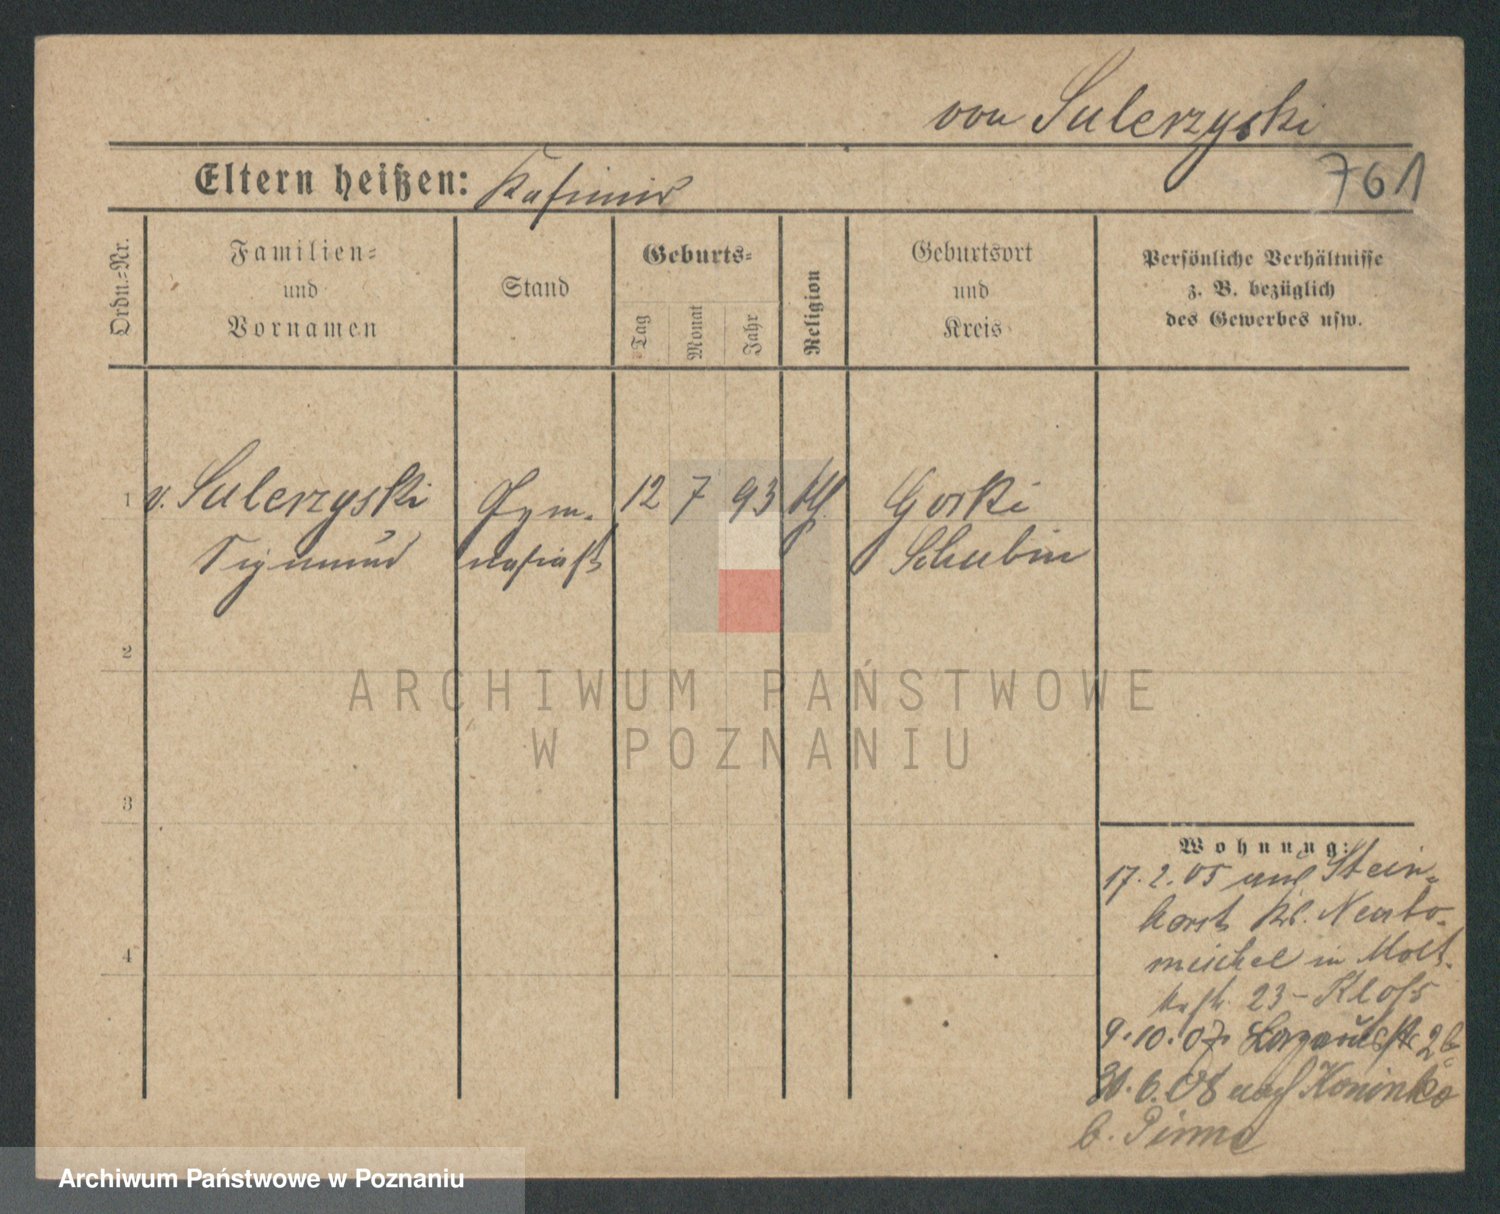 von Sulerzyski
Eltern heißen: Kasimir
761
Ordn.-Nr.
Familien-
und
Vornamen
Stand
Geburts-
Tag
Monat
Jahr
Religion
Geburtsort
und
Kreis
Persönliche Verhältnisse
z. B. bezüglich
des Gewerbes usw.
1 v. Sulerzyski Gym- 12 7 93 kth. Gorki
Sigmund nasiast Schubin
2
3
4
Wohnung:
17. 2. 05 aus Stein-
horst Krs. Neuto-
mischel in Molt-
kestr. 23 - Kloss
9. 10. 07. Lazarusstr 2b
30. 6. 08 nach Koninko
b. Pinne
ARCHIWUM PAŃSTWOWE
W POZNANIU
Archiwum Państwowe w Poznaniu